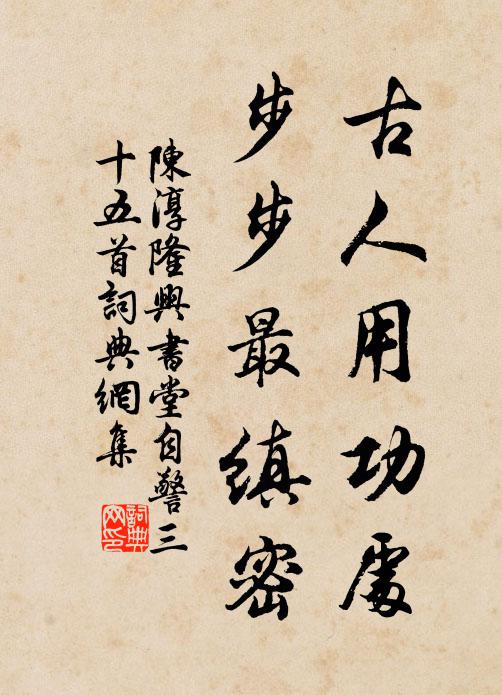 古人用功處
步步最縝密
陳淳隆興書堂自警三
十五首詞典網集
詞典
网印